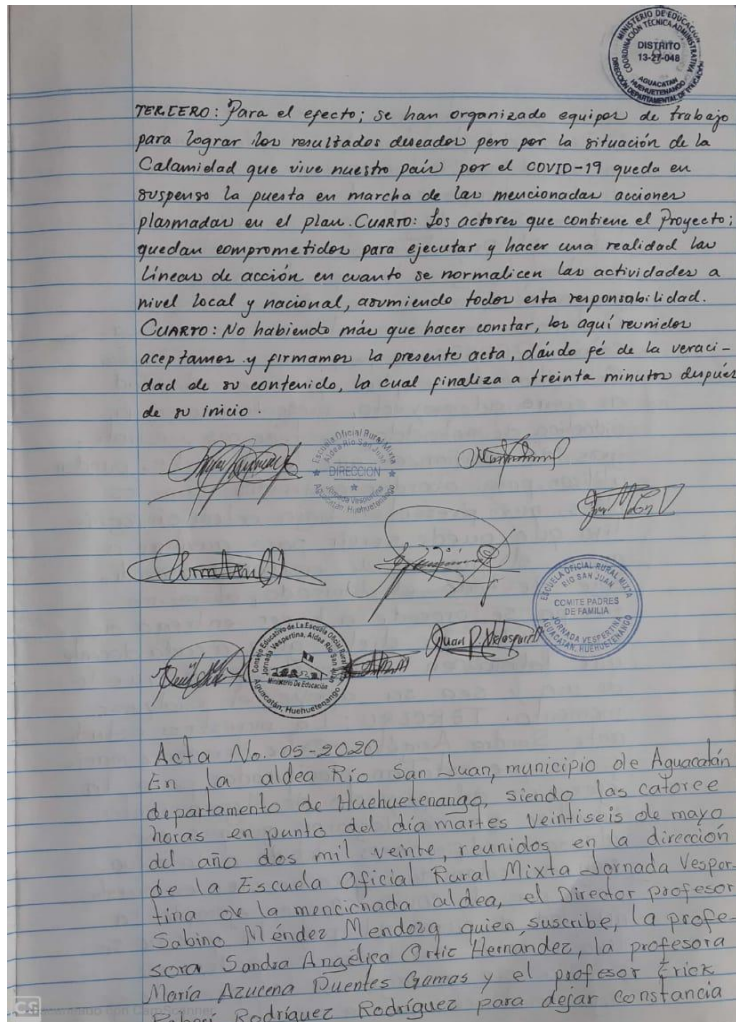 MINISTERIO DE EDUCACIÓN
COORDINACIÓN TÉCNICA ADMINISTRATIVA
DISTRITO
13-27-048
AGUACATÁN
HUEHUETENANGO
DIRECCIÓN DEPARTAMENTAL DE EDUCACIÓN
TERCERO: Para el efecto; se han organizado equipos de trabajo
para lograr los resultados deseados pero por la situación de la
Calamidad que vive nuestro país por el COVID-19 queda en
suspenso la puesta en marcha de las mencionadas acciones
plasmadas en el plan. CUARTO: Los actores que contiene el Proyecto;
quedan comprometidos para ejecutar y hacer una realidad las
Líneas de acción en cuanto se normalicen las actividades a
nivel local y nacional, asumiendo todos esta responsabilidad.
CUARTO: No habiendo más que hacer constar, los aquí reunidos
aceptamos y firmamos la presente acta, dándo fé de la veraci-
dad de su contenido, la cual finaliza a treinta minutos después
de su inicio.
Escuela Oficial Rural Mixta
Aldea Río San Juan
DIRECCION
Jornada Vespertina
Aguacatán, Huehuetenango
ESCUELA OFICIAL RURAL MIXTA
RIO SAN JUAN
COMITE PADRES
DE FAMILIA
JORNADA VESPERTINA
AGUACATAN, HUEHUETENANGO
Consejo Educativo de La Escuela Oficial Rural
Jornada Vespertina, Aldea Río San Juan
Ministerio De Educación
Aguacatán, Huehuetenango
Acta No. 05-2020
En la aldea Río San Juan, municipio de Aguacatán
departamento de Huehuetenango, siendo las catorce
horas en punto del día martes veintiseis de mayo
del año dos mil veinte, reunidos en la dirección
de la Escuela Oficial Rural Mixta Jornada Vesper-
tina de la mencionada aldea, el Director profesor
Sabino Méndez Mendoza quien suscribe, la profe-
sora Sandra Angélica Ortiz Hernández, la profesora
María Azucena Puentes Gamas y el profesor Erick
Rodríguez Rodríguez para dejar constancia
CS